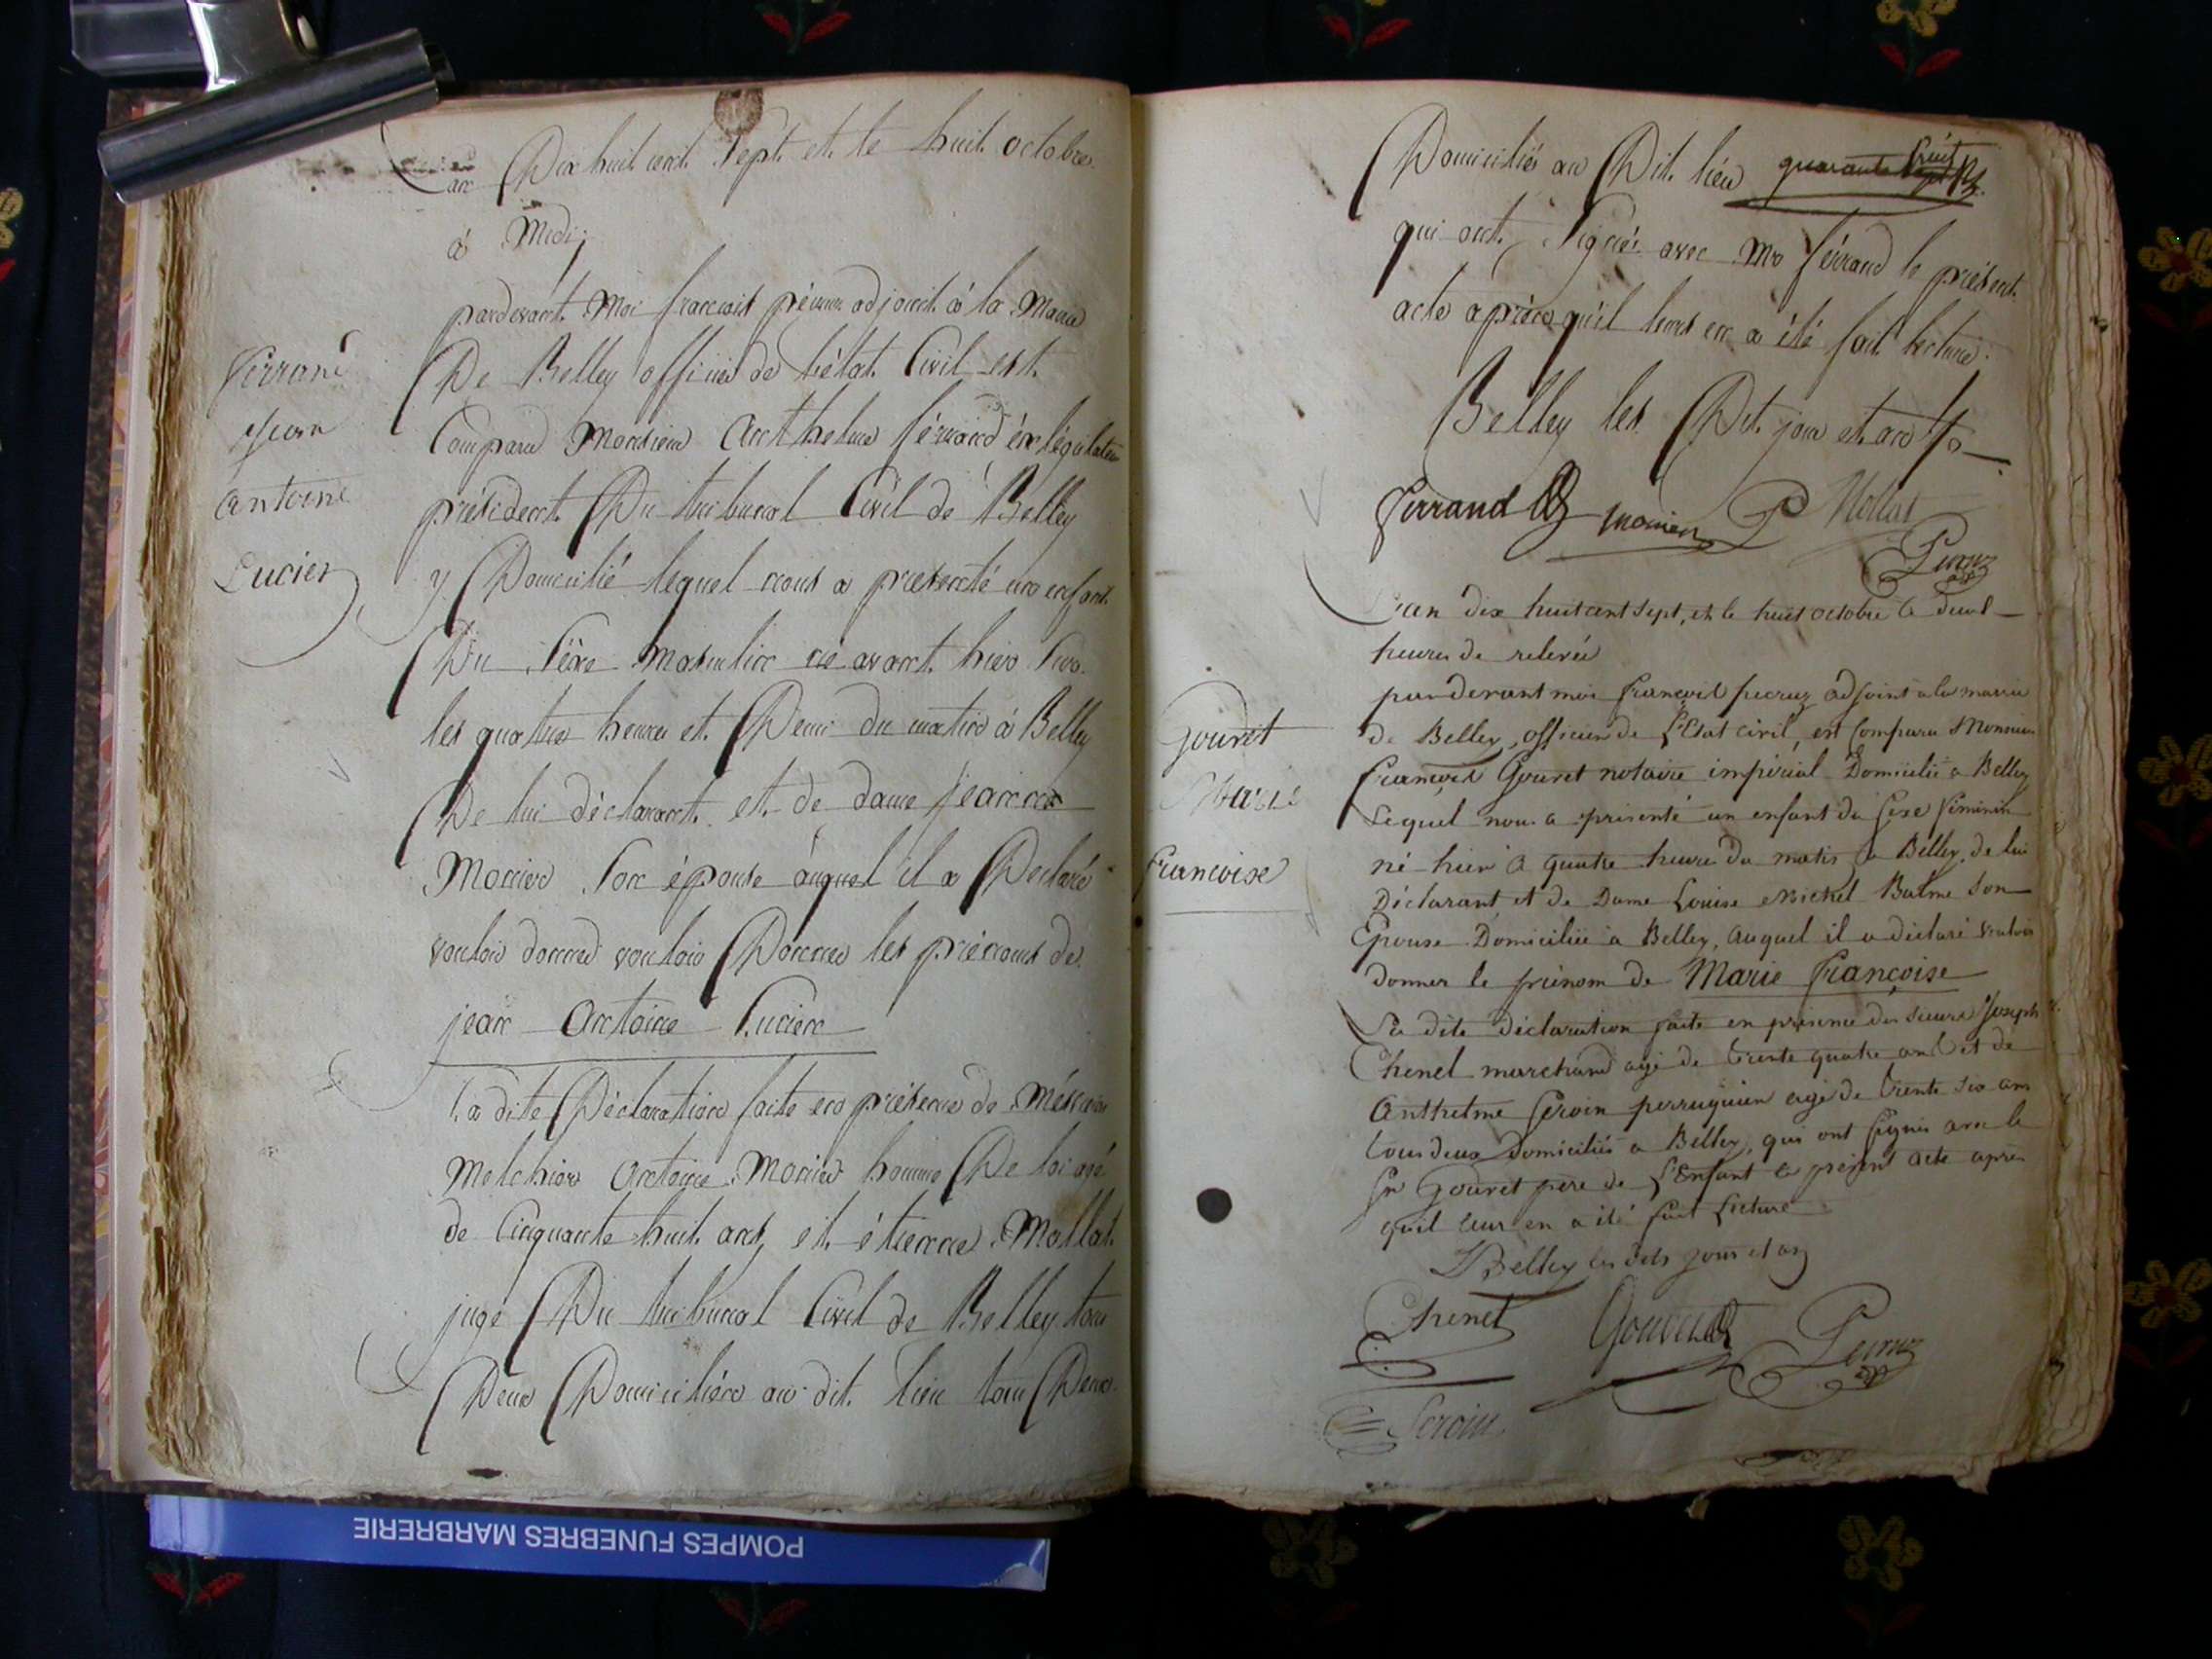 an Dix huit cent Sept et le huit octobre
à Midi
pardevant Moi francois péruuz adjoint à la Mairie
Ferrand
De Belley officier de l'état Civil est
jean
Comparu Monsieur Anthelme férrand éx législateur
antoine
président Du tribunal Civil de Belley
Lucien
y Domicilié lequel nous a présenté un enfant
Du Séxe Masculin né avant hier sur
les quatres heures et Demi du matin à Belley
De lui déclarant et de dame jeanne
Monier Son épouse auquel il a Déclaré
vouloir donner vouloir Donner les prénoms de
jean Antoine Lucien
la dite Déclaration faite en présence de Méssieurs
Melchior Antoine Monier homme De loi agé
de Cinquante huit ans et étienne Mollat
juge Du tribunal Civil de Belley tous
Deux Domiciliés au dit lieu tous Deux
Domiciliés au Dit lieu quarante huit
qui ont Signé avec Mr férrand le présent
acte après qu'il leurs en a été fait lecture
Belley les Dit jour et an
Ferrand monier Mollat
Peruuz
L'an dix huit cent sept, et le huit octobre à deux
heures de relevée
pardevant moi françois peruuz adjoint à la mairie
Gouret
de Belley, officier de l'Etat civil, est comparu Monsieur
Marie
françois Gouret notaire impérial Domicilié a Belley
Lequel nous a présenté un enfant du sexe féminin
francoise
né hier a quatre heures du matin a Belley, de lui
Déclarant et de Dame Louise Michel Balme son
Epouse Domiciliée a Belley, auquel il a déclaré vouloir
donner le prénom de Marie françoise
La dite déclaration faite en présence des sieurs Joseph
Chenel marchand agé de trente quatre ans et de
Anthelme Seroin perruquier agé de trente six ans
tous deux domiciliés a Belley, qui ont signés avec le
Sr Gouret père de l'Enfant le présent acte après
qu'il leur en a été fait lecture
Belley les dits jour et an
Chenel Gouret Peruuz
Seroin
POMPES FUNEBRES MARBRERIE